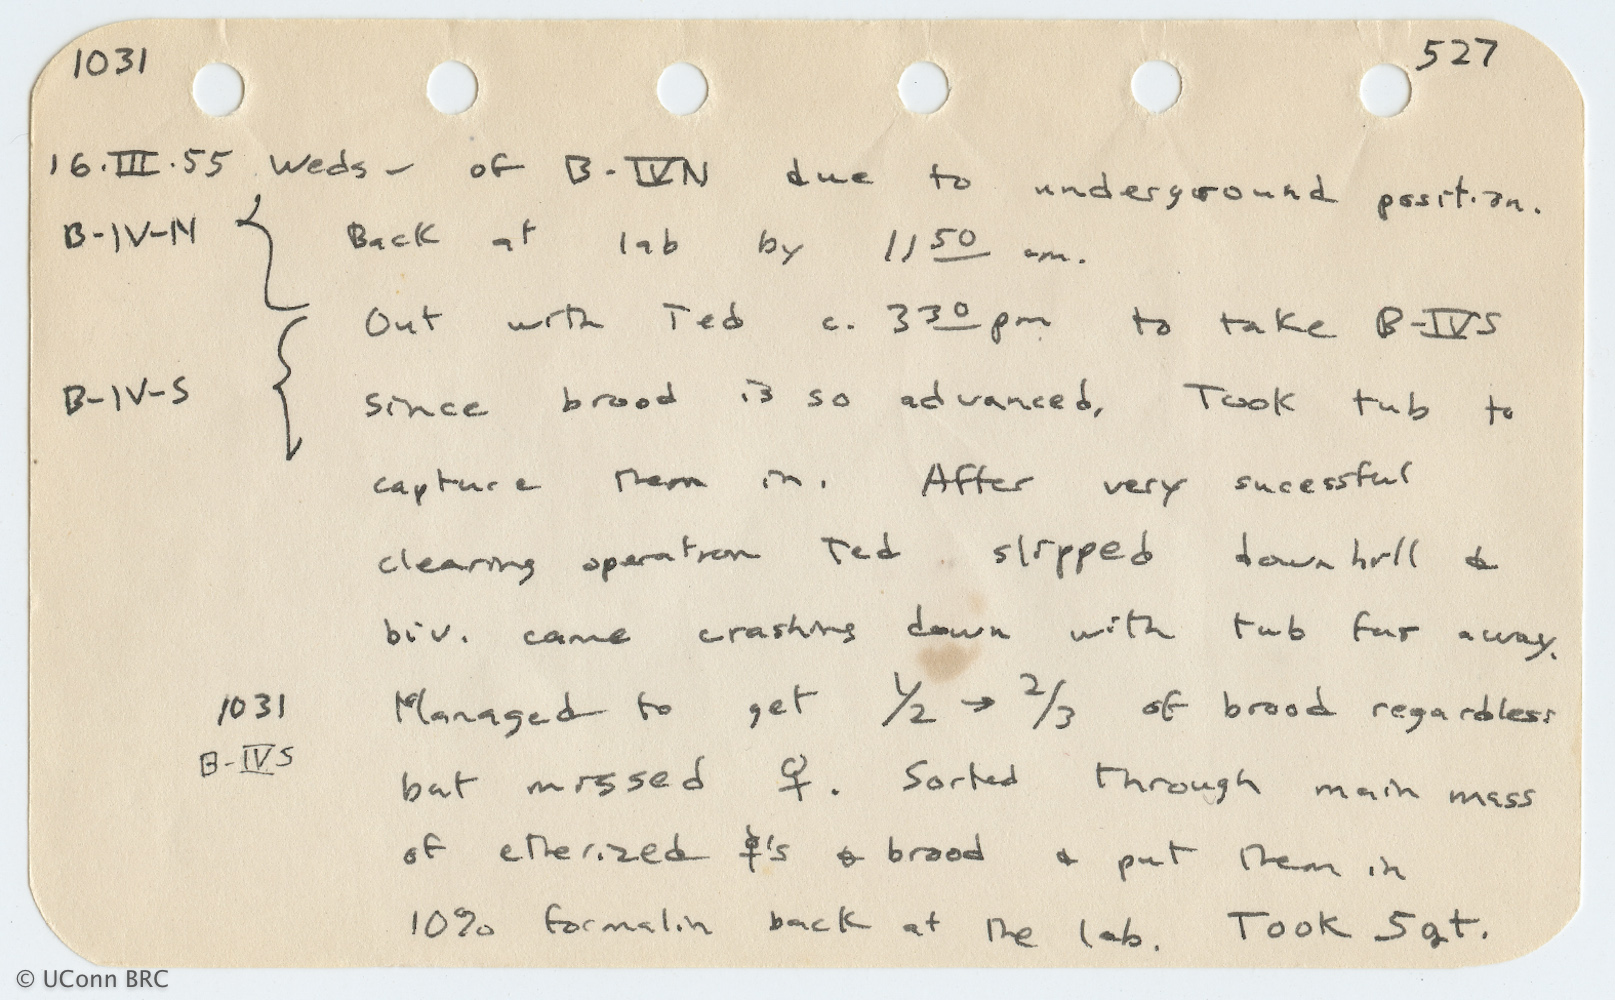 1031 527
16.III.55 Weds - of B-IVN due to underground position.
B-IV-N Back at lab by 11 50 am.
Out with Ted c. 3 30 pm to take B-IVS
B-IV-S since brood is so advanced. Took tub to
capture them in. After very sucessful
clearing operation Ted slipped downhill &
biv. came crashing down with tub far away.
1031 Managed to get 1/2 → 2/3 of brood regardless
B-IVS but missed ♀. Sorted through main mass
of etherized ☿'s & brood & put them in
10% formalin back at the lab. Took 5 qt.
© UConn BRC